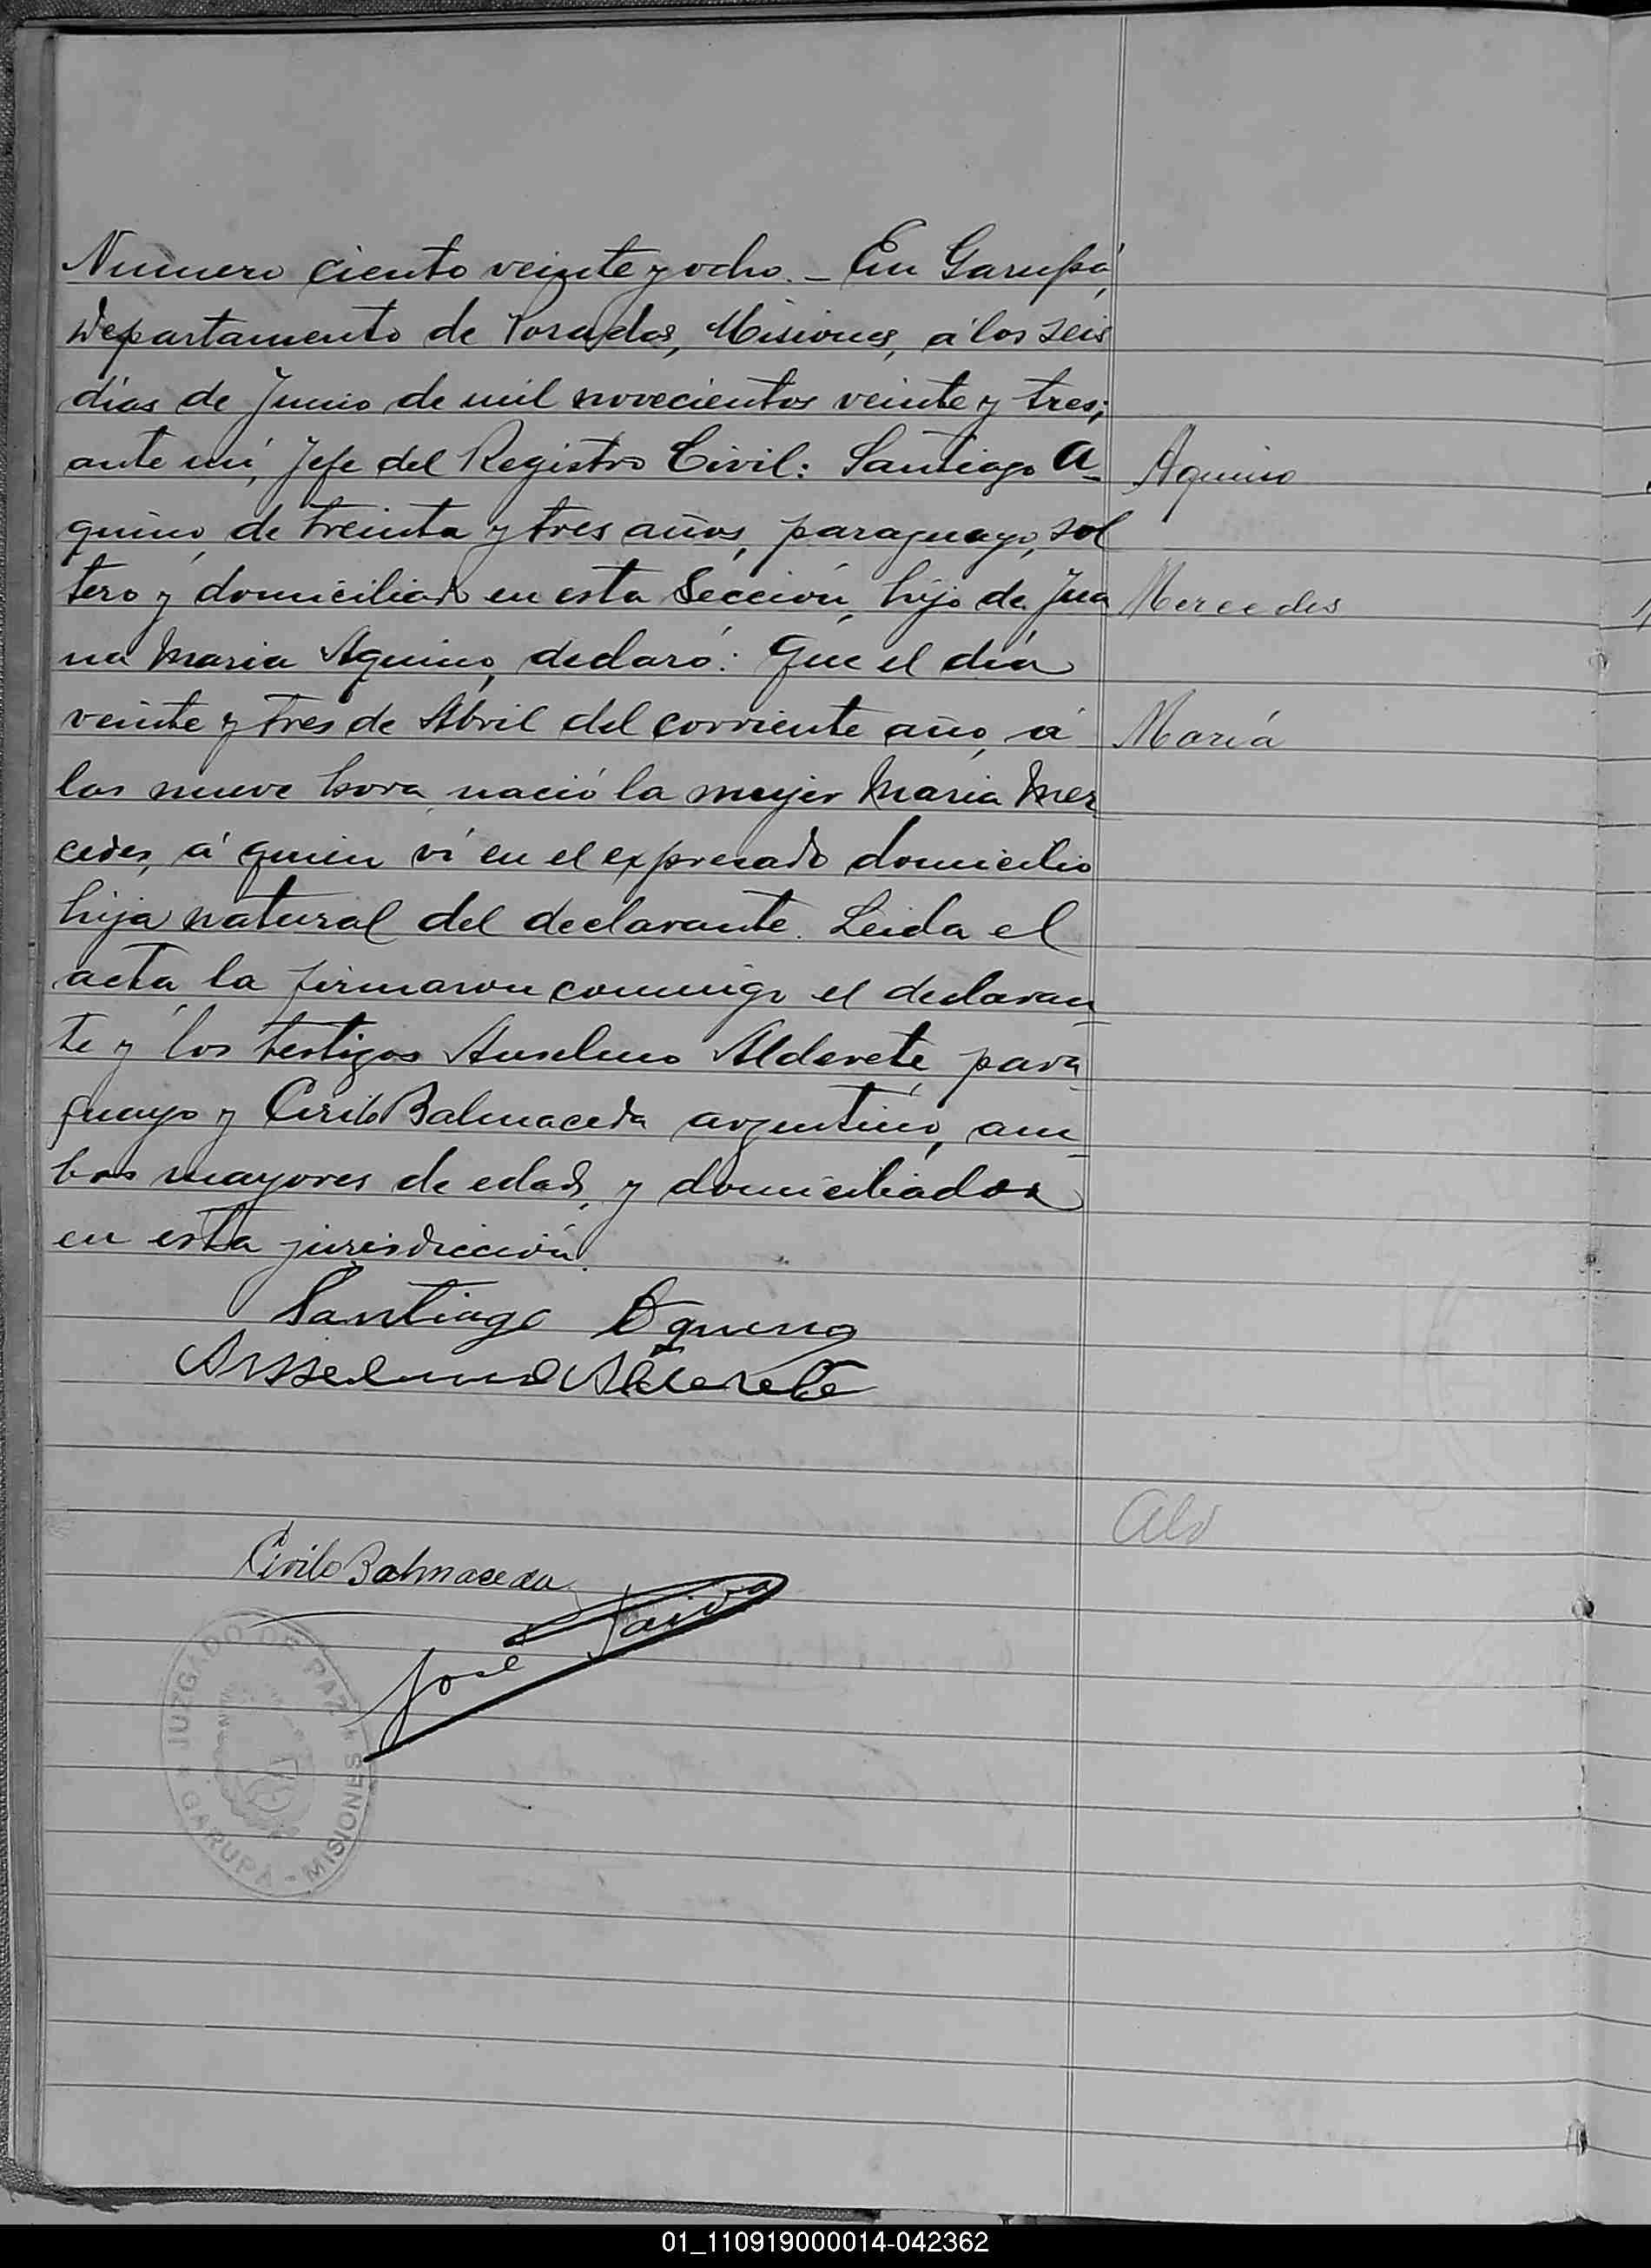 Numero ciento veinte y ocho. _ En Garupá,
Departamento de Posadas, Misiones, á los seis
días de Junio de mil novecientos veinte y tres;
ante mí, Jefe del Registro Civil: Santiago A_
quino, de treinta y tres años, paraguayo, sol
tero y domiciliado en esta Sección, hijo de Jua
na Maria Aquino, declaró: Que el día
veinte y tres de Abril del corriente año, á
las nueve hora nació la mujer Maria Mer
cedes, á quien ví en el expresado domicilio
hija natural del declarante. Leida el
acta la firmaron conmigo el declaran_
te y los testigos Anselmo Alderete, para_
guayo y Cirilo Balmaceda argentino, am_
bos mayores de edad, y domiciliados
en esta jurisdicción.
Aquino
Mercedes
María
Santiago Aquino
Anselmo Alderete
Cirilo Balmaceda
José
JUZGADO DE PAZ
GARUPÁ - MISIONES
01_110919000014-042362